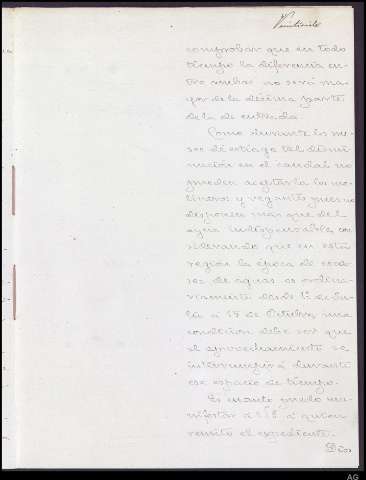 Veintisiete
comprobar que en todo
tiempo la diferencia en-
tre ambas no será ma-
yor de la décima parte
de la de entrada.
Como durante los me-
ses de estiage tal dismi-
nución en el caudal no
pueden aceptarla los mo-
lineros y regantes pues no
disponen más que del
agua indispensable, con-
siderando que en esta
región la época de esca-
sez de aguas es ordina-
riamente desde 1º de Ju-
lio á 15 de Octubre, una
condición debe ser que
el aprovechamiento se
interrumpirá durante
ese espacio de tiempo.
Es cuanto puedo ma-
nifestar á V.S. á quien
remito el expediente.
Dios
AG